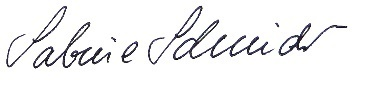 Sabine Schmidt